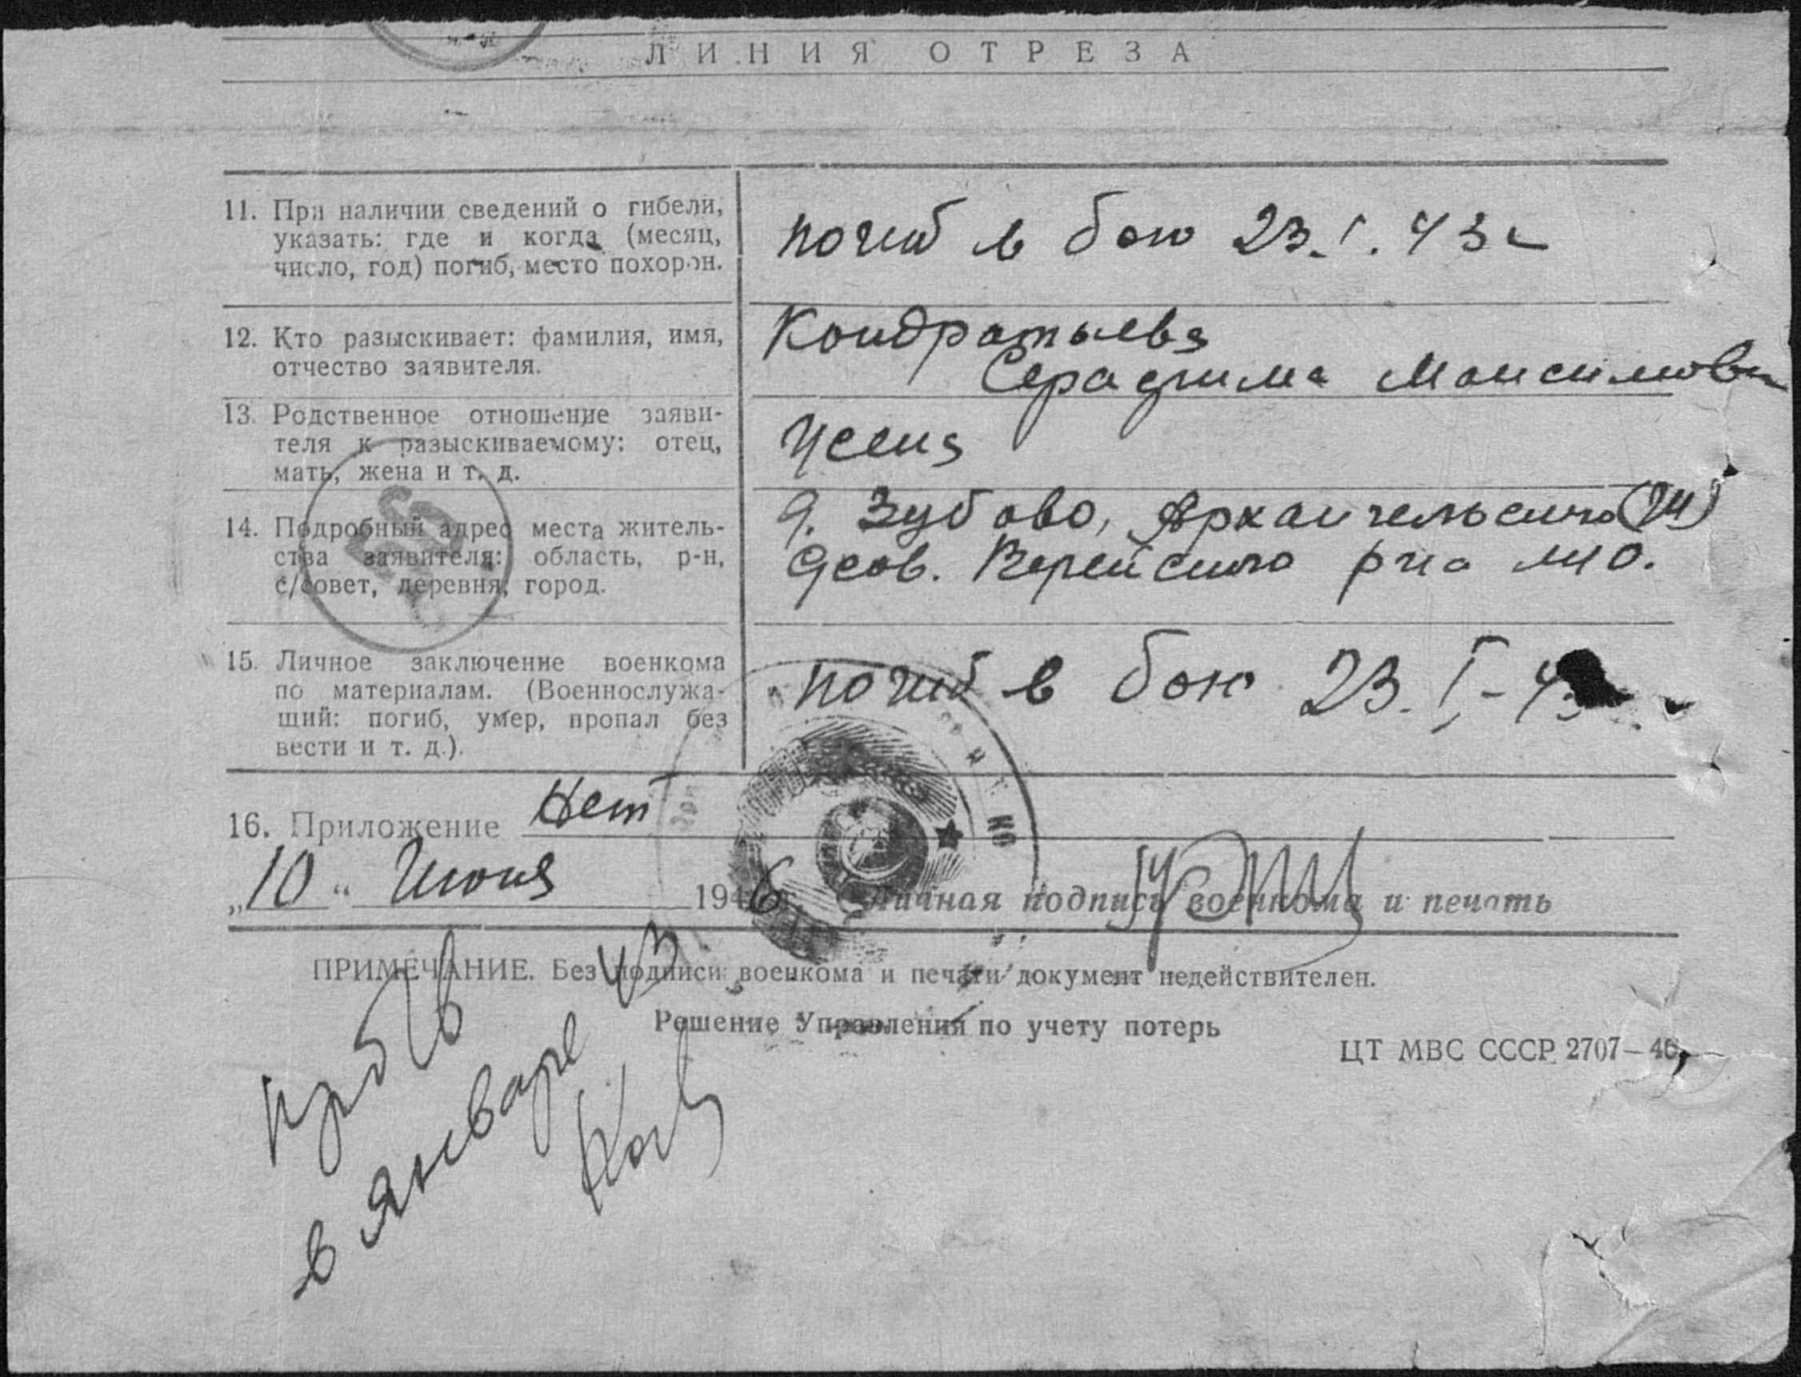 ЛИНИЯ ОТРЕЗА
11. При наличии сведений о гибели,
указать: где и когда (месяц,
число, год) погиб, место похорон.
погиб в бою 23.I.43г
12. Кто разыскивает: фамилия, имя,
отчество заявителя.
Кондратьева
Серафима Максимовн
13. Родственное отношение заяви-
теля к разыскиваемому: отец,
мать, жена и т. д.
Жена
14. Подробный адрес места житель-
ства заявителя: область, р-н,
с/совет, деревня, город.
д. Зубово, Архангельского
Верейского р-на М.О.
15. Личное заключение военкома
по материалам. (Военнослужа-
щий: погиб, умер, пропал без
вести и т. д.).
погиб в бою 23.I-43
16. Приложение Нет
„10" Июня 1946 Личная подпись военкома и печать
ПРИМЕЧАНИЕ. Без подписи военкома и печати документ недействителен.
Решение Управления по учету потерь
ЦТ МВС СССР 2707—46
в январе 43